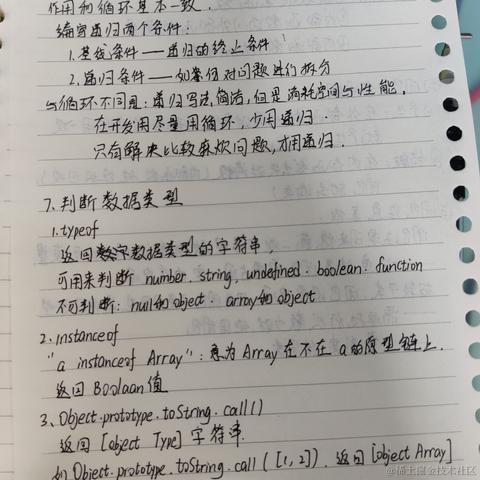 作用和循环基本一致.
编写递归两个条件:
1.基线条件——递归的终止条件
2.递归条件——如何对问题进行拆分
与循环不同是:递归写法简洁,但是消耗空间与性能,
在开发用尽量用循环,少用递归.
只有解决比较麻烦问题,才用递归.
7.判断数据类型
1.typeof
返回数据类型的字符串
可用来判断 number. string. undefined. boolean. function
不可判断: null和object. array和object
2.instanceof
"a instanceof Array": 意为 Array 在不在 a的原型链上.
返回 Boolaan 值
3、Object.prototype.toString.call()
返回 [object Type] 字符串.
如 Object.prototype.toString.call([1,2]). 返回 [object Array]
@稀土掘金技术社区